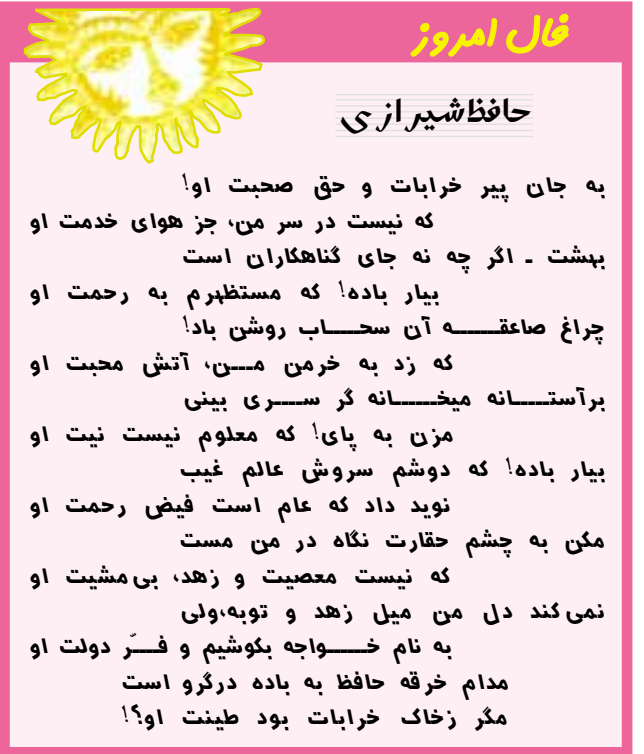 فال امروز
حافظ شیرازی
به جان پیر خرابات و حق صحبت او!
که نیست در سر من، جز هوای خدمت او
بهشت ـ اگر چه نه جای گناهکاران است
بیار باده! که مستظهرم به رحمت او
چراغ صاعقـــه آن سحـــاب روشن باد!
که زد به خرمن مـــن، آتش محبت او
برآستـــانه میخـــانه گر ســـری بینی
مزن به پای! که معلوم نیست نیت او
بیار باده! که دوشم سروش عالم غیب
نوید داد که عام است فیض رحمت او
مکن به چشم حقارت نگاه در من مست
که نیست معصیت و زهد، بی مشیت او
نمی کند دل من میل زهد و توبه،ولی
به نام خـــواجه بکوشیم و فـــرّ دولت او
مدام خرقه حافظ به باده درگرو است
مگر زخاک خرابات بود طینت او؟!